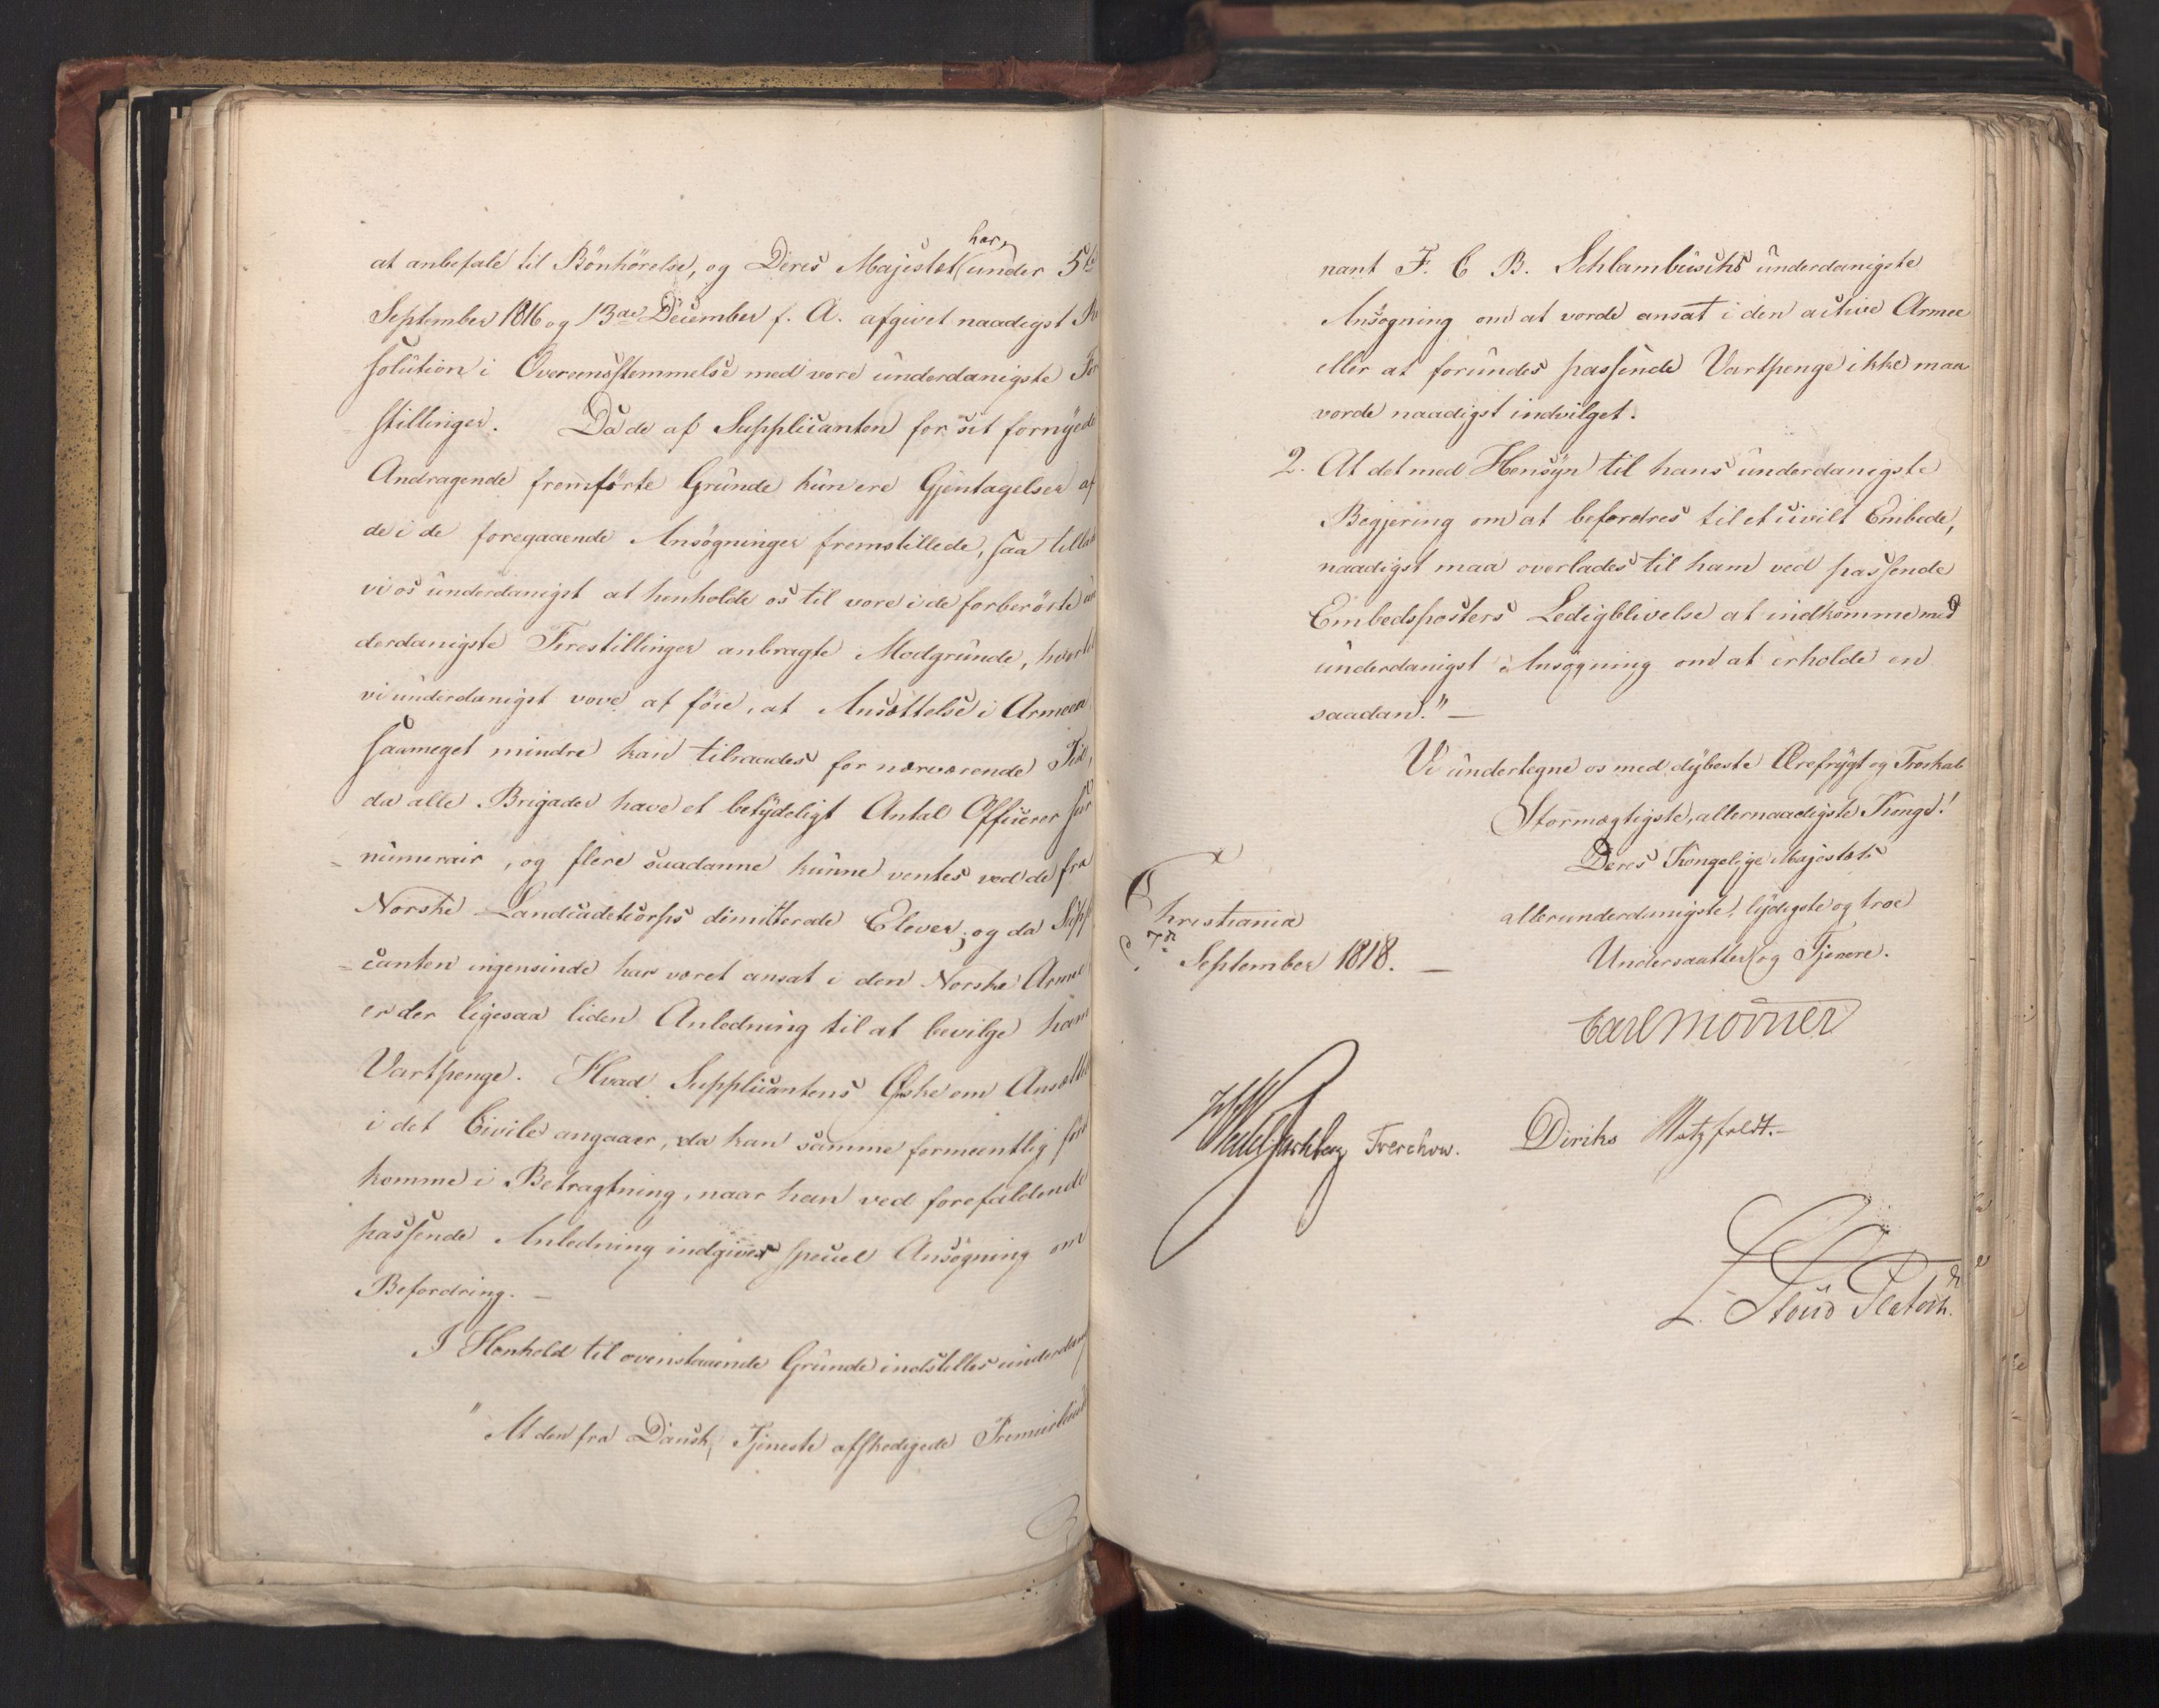 at anbefale til Bönhörelse, og Deres Majestæt har under 5te
September 1816 og 13de December f. A. afgivet naadigst Re
solution i Overeensstemmelse med vore underdanigste For
stillinger. Da de af Supplicanten for sit fornyede
Andragende fremførte Grunde kun ere Gjentagelser af
de i de foregaaende Ansøgninger fremstillede, saa tillade
vi os underdanigst at henholde os til vore i de forberörte un
derdanigste Forestillinger anbragte Modgrunde, hvortil
vi underdanigst vove at föie, at Ansættelse i Armeen
saameget mindre kan tilraades for nærværende Tid,
da alle Brigader have et betydeligt Antal Officerer sur
numerair, og flere saadanne kunne ventes ved de fra
Norske Landcadetcorps dimitterede Elever; og da Suppli
canten ingensinde har været ansat i den Norske Armee
er der ligesaa liden Anledning til at bevilge ham
Vartpenge. Hvad Supplicantens Ønske om Ansættelse
i det Civile angaaer, da kan samme formeentlig först
komme i Betragtning, naar han ved forefaldende
passende Anledning indgiver speciel Ansøgning om
Befordring. —
I Henhold til ovenstaaende Grunde indstilles underdanigst
"At den fra Dansk Tjeneste afskedigede Premierlieut
nant F. C B. Schlambuschs underdanigste
Ansøgning om at vorde ansat i den active Armee
eller at forundes passende Vartpenge ikke maa
vorde naadigst indvilget.
2. At det med Hensyn til hans underdanigste
Begjering om at befordres til et civilt Embede,
naadigst maa overlades til ham ved passende
Embedsposters Ledigblivelse at indkomme med
underdanigst Ansøgning om at erholde en
saadan." —
Vi undertegne os med dybeste Ærefrygt og Troskab
Stormægtigste, allernaadigste Konge!
Deres Kongelige Majestæts
allerunderdanigste, lydigste og troe
Undersaatter og Tjenere.
Christiania
d. 7de
September 1818. —
Carl Mörner
Wedel Jarlsberg Treschow. Diriks Motzfeldt. —
L. Stoud Platou